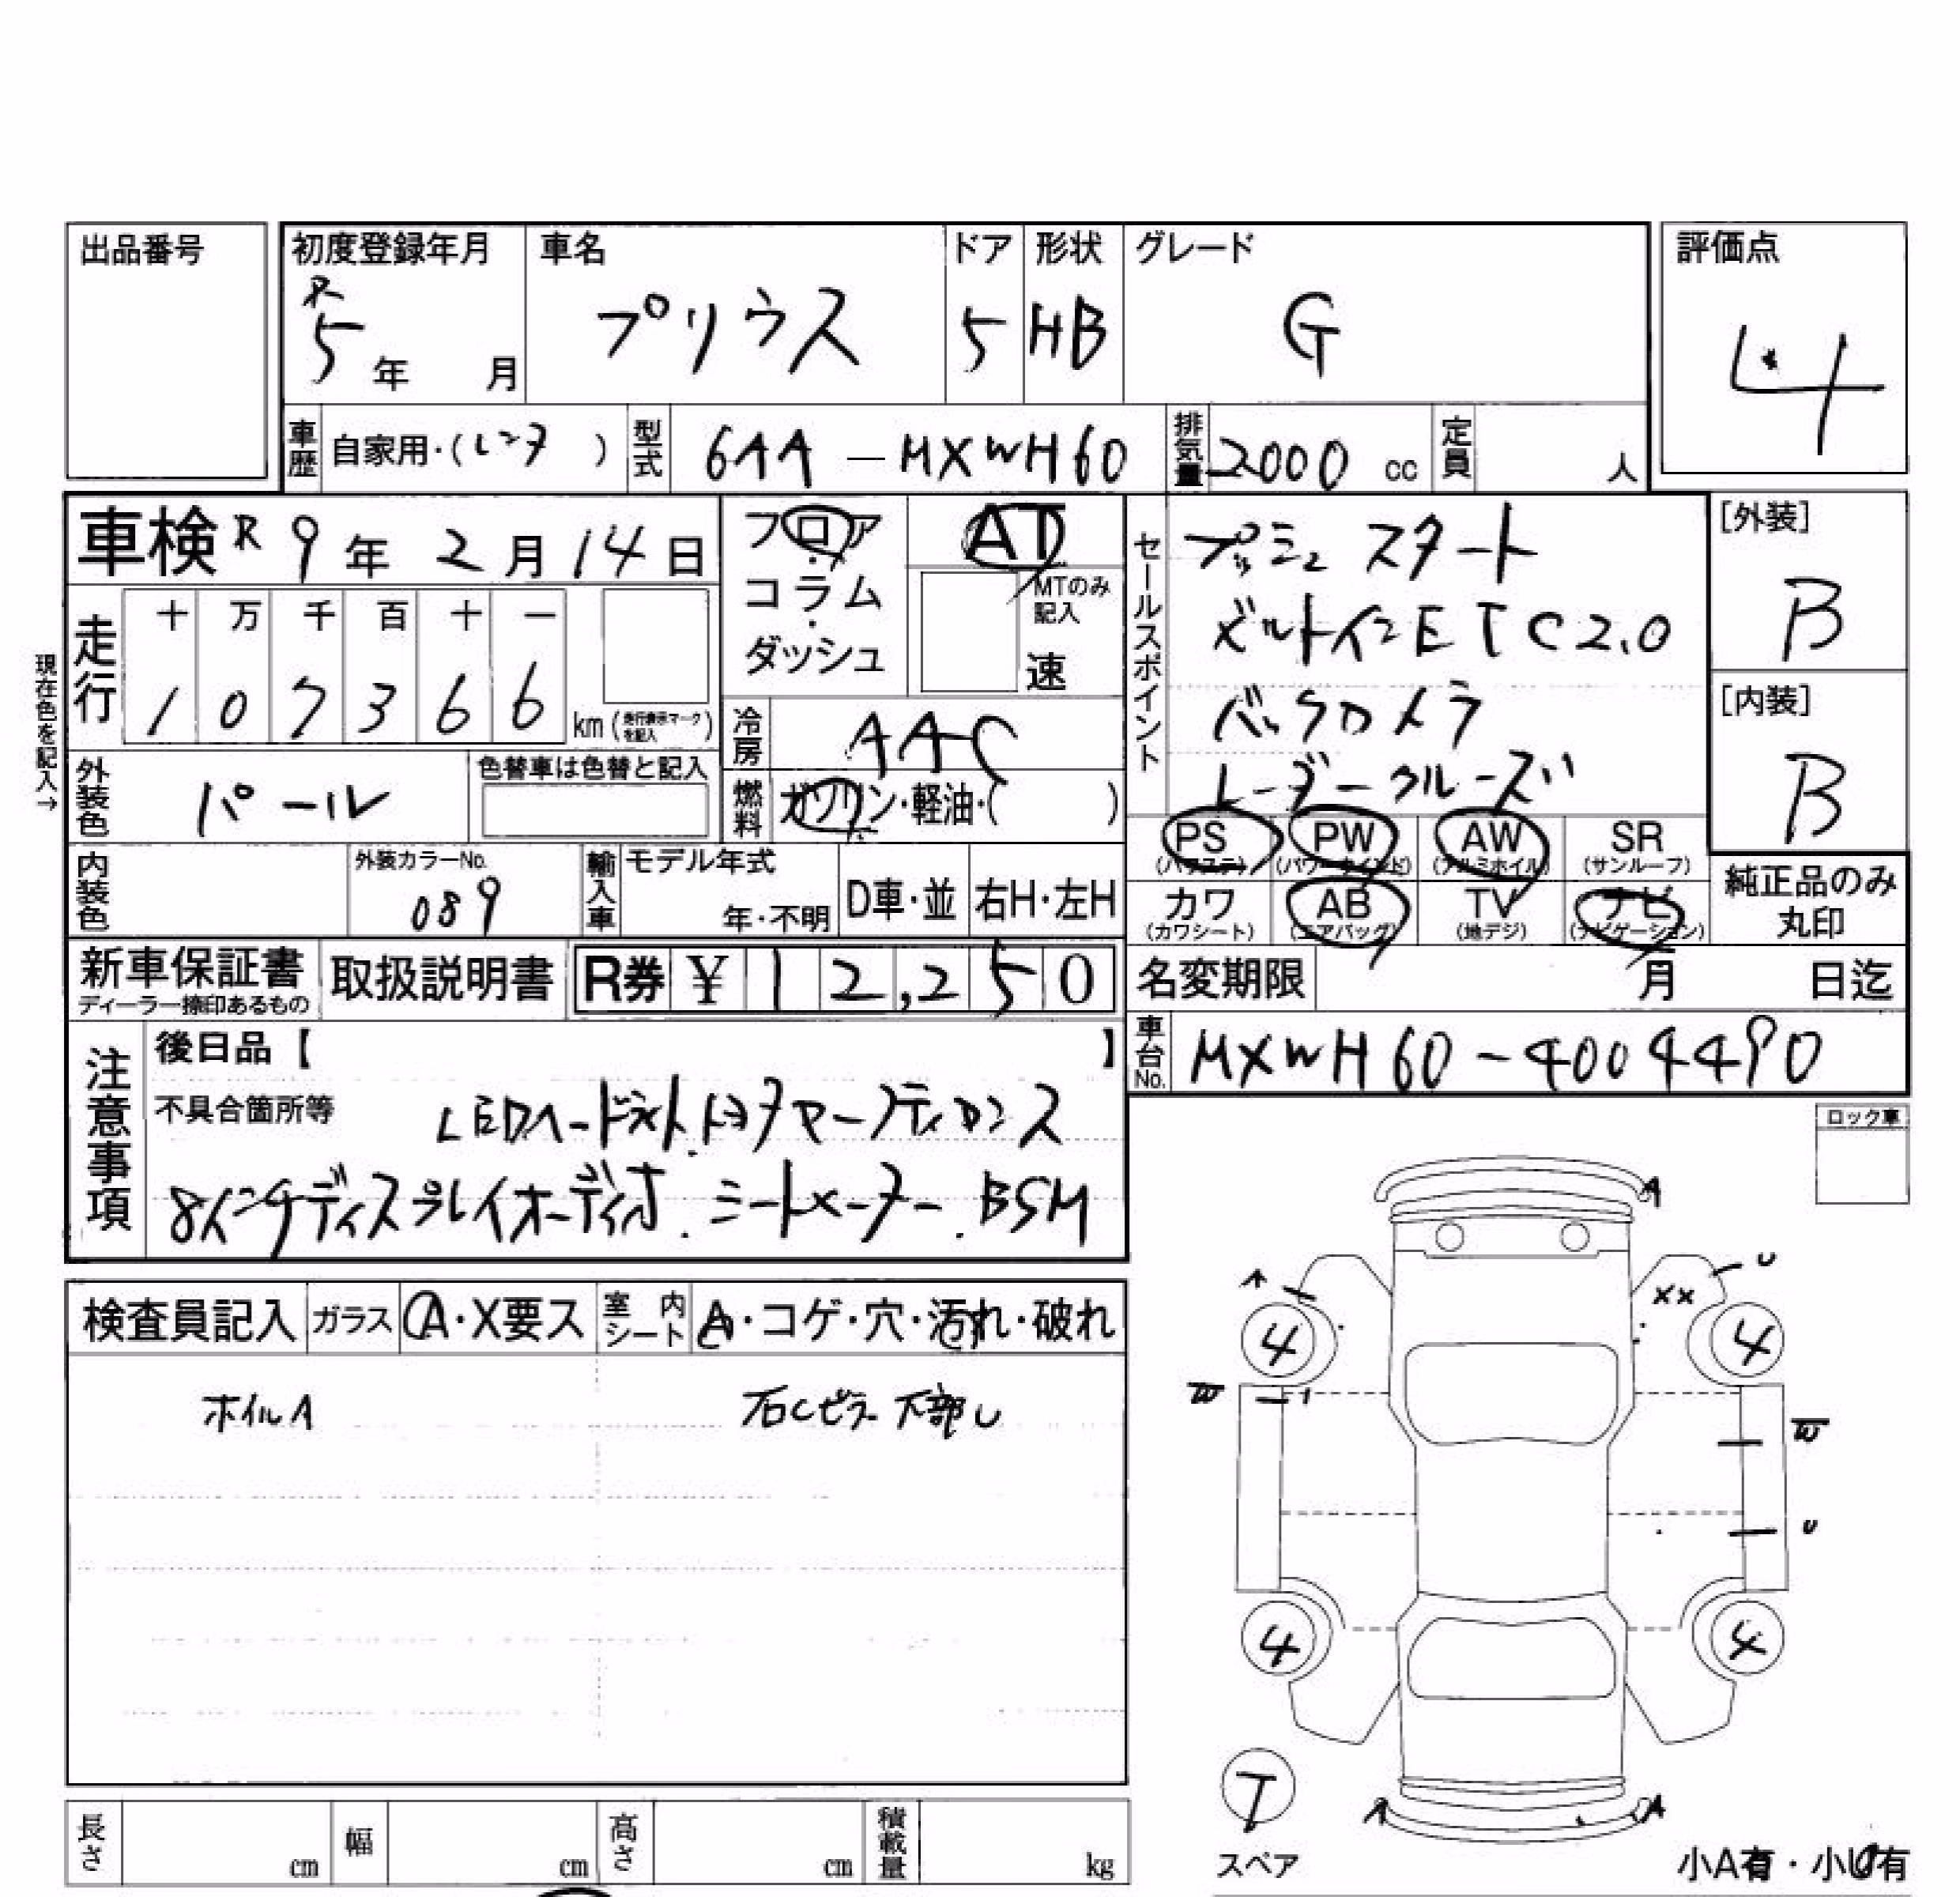 出品番号
初度登録年月 R5年 月
車名 プリウス
ドア 5
形状 HB
グレード G
評価点 4
車歴 自家用・(レンタ )
型式 6AA-MXWH60
排気量 2000 cc
定員 人
車検 R9年 2月 14日
フロア・コラム・ダッシュ
AT
MTのみ記入
速
セールスポイント
プッシュスタート
ビルトインETC2.0
バックカメラ
レーダークルーズ
[外装]
B
[内装]
B
現在色を記入→
走行 十 万 千 百 十 一
1 0 7 3 6 6 km (走行表示マークを記入)
冷房 AAC
燃料 ガソリン・軽油・( )
外装色 パール
色替車は色替と記入
PS (パワステ) PW (パワーウインド) AW (アルミホイル) SR (サンルーフ)
カワ (カワシート) AB (エアバッグ) TV (地デジ) ナビ (ナビゲーション)
純正品のみ丸印
内装色
外装カラーNo. 089
輸入車 モデル年式 年・不明 D車・並 右H・左H
新車保証書 ディーラー捺印あるもの
取扱説明書
R券 ¥ 12,250
名変期限 月 日迄
車台No. MXWH60-4004490
注意事項
後日品【 】
不具合箇所等 LEDヘッドライト.トヨタセーフティセンス
8インチディスプレイオーディオ.シートヒーター.BSM
ロック車
検査員記入 ガラス A・X要ス 室内シート A・コゲ・穴・汚れ・破れ
ホイルA 右Cピラー下部U
A
A U
XX
4 4
W W
U
4 4
T
スペア
A A
小A有・小U有
長さ cm 幅 cm 高さ cm 積載量 kg